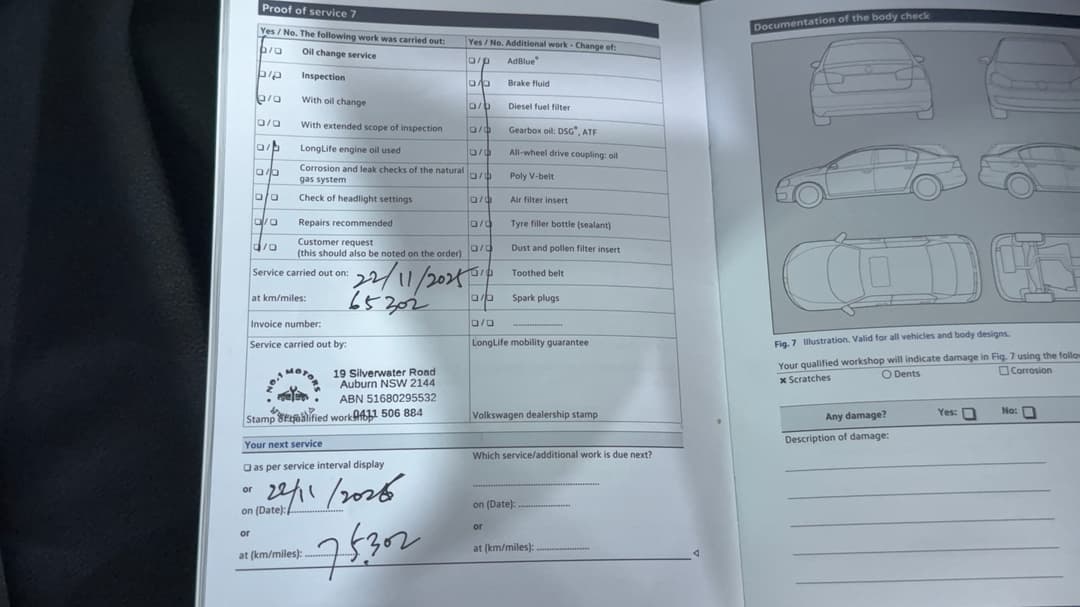 Proof of service 7
Yes / No. The following work was carried out:
Oil change service
Inspection
With oil change
With extended scope of inspection
LongLife engine oil used
Corrosion and leak checks of the natural
gas system
Check of headlight settings
Repairs recommended
Customer request
(this should also be noted on the order)
Service carried out on: 22/11/2025
at km/miles: 65302
Invoice number:
Service carried out by:
NO.1 MOTORS
19 Silverwater Road
Auburn NSW 2144
ABN 51680295532
0411 506 884
Stamp of qualified workshop
Yes / No. Additional work - Change of:
AdBlue®
Brake fluid
Diesel fuel filter
Gearbox oil: DSG®, ATF
All-wheel drive coupling: oil
Poly V-belt
Air filter insert
Tyre filler bottle (sealant)
Dust and pollen filter insert
Toothed belt
Spark plugs
LongLife mobility guarantee
Volkswagen dealership stamp
Your next service
as per service interval display
or
on (Date): 22/11/2026
or
at (km/miles): 75302
Which service/additional work is due next?
on (Date):
or
at (km/miles):
Documentation of the body check
Fig. 7 Illustration. Valid for all vehicles and body designs.
Your qualified workshop will indicate damage in Fig. 7 using the
x Scratches O Dents Corrosion
Any damage? Yes: No:
Description of damage: